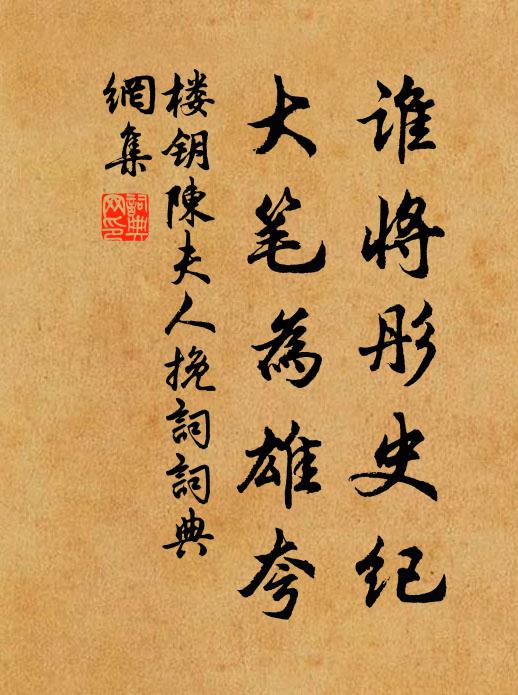 谁将彤史纪
大笔為雄夸
楼钥陳夫人挽詞詞典
網集
詞典网印